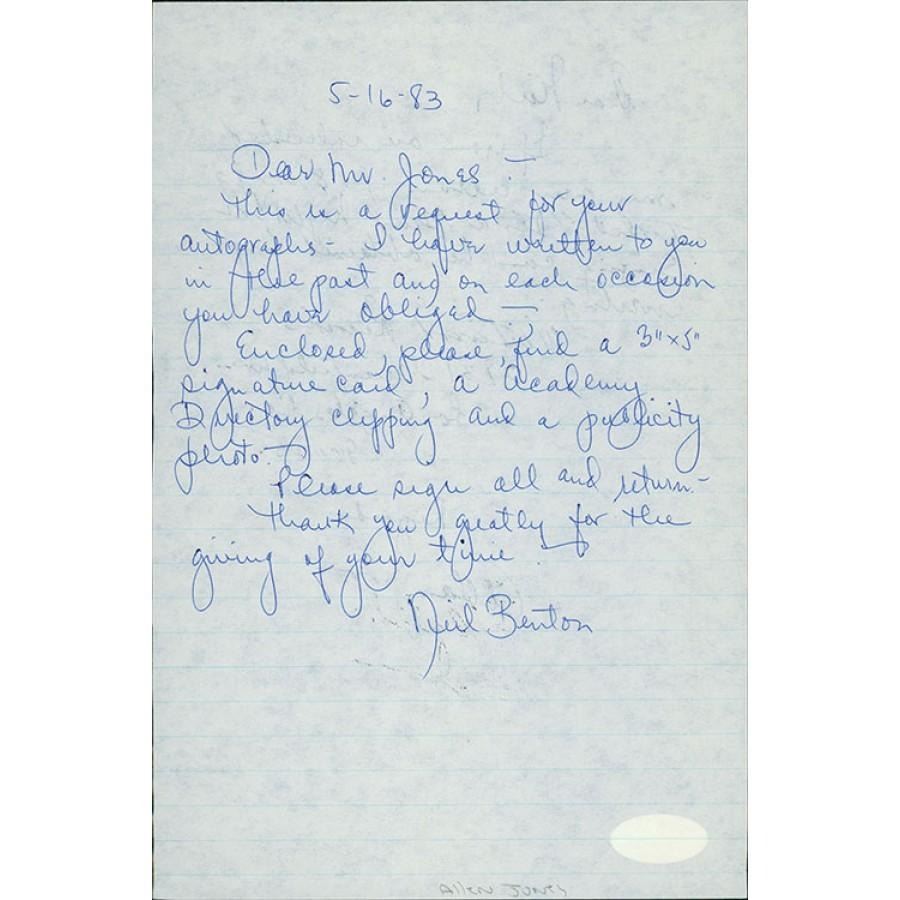 5-16-83
Dear Mr. Jones –
This is a request for your
autographs – I have written to you
in the past and on each occasion
you have obliged –
Enclosed, please, find a 3"x5"
signature card, a Academy
Directory clipping and a publicity
photo. –
Please sign all and return. –
Thank you greatly for the
giving of your time. –
Neil Benton
Allen Jones